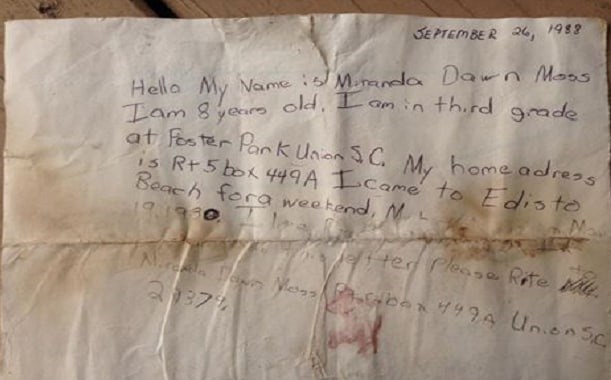 SEPTEMBER 26, 1988
Hello My Name is Miranda Dawn Moss
I am 8 years old. I am in third grade
at Foster Park Union S.C. My home adress
is Rt 5 box 449A I came to Edisto
Beach for a weekend,
letter Please Rite to
Miranda Dawn Moss box 449A Union S.C.
29379.